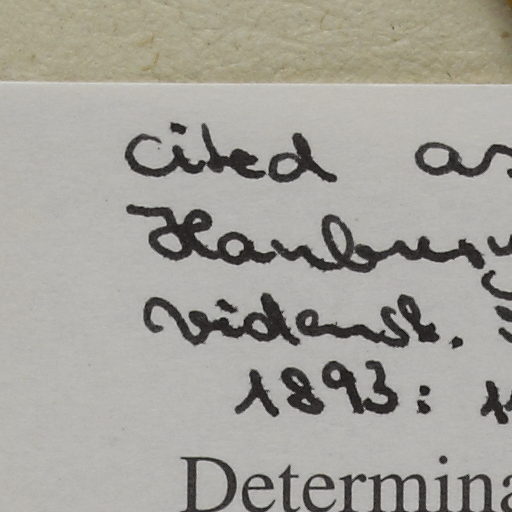 cited as
Hanbury
vidensk.
1893: 11
Determina